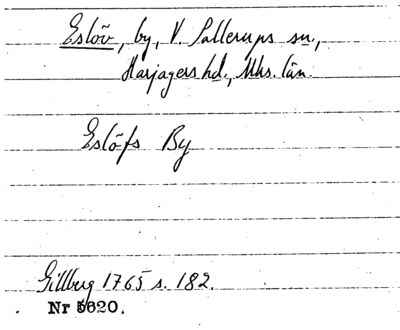 Eslöv, by, V. Sallerups sn.,
Harjagers hd., Mhs. län.
Eslöfs By
Gillberg 1765 s. 182.
Nr 5620.